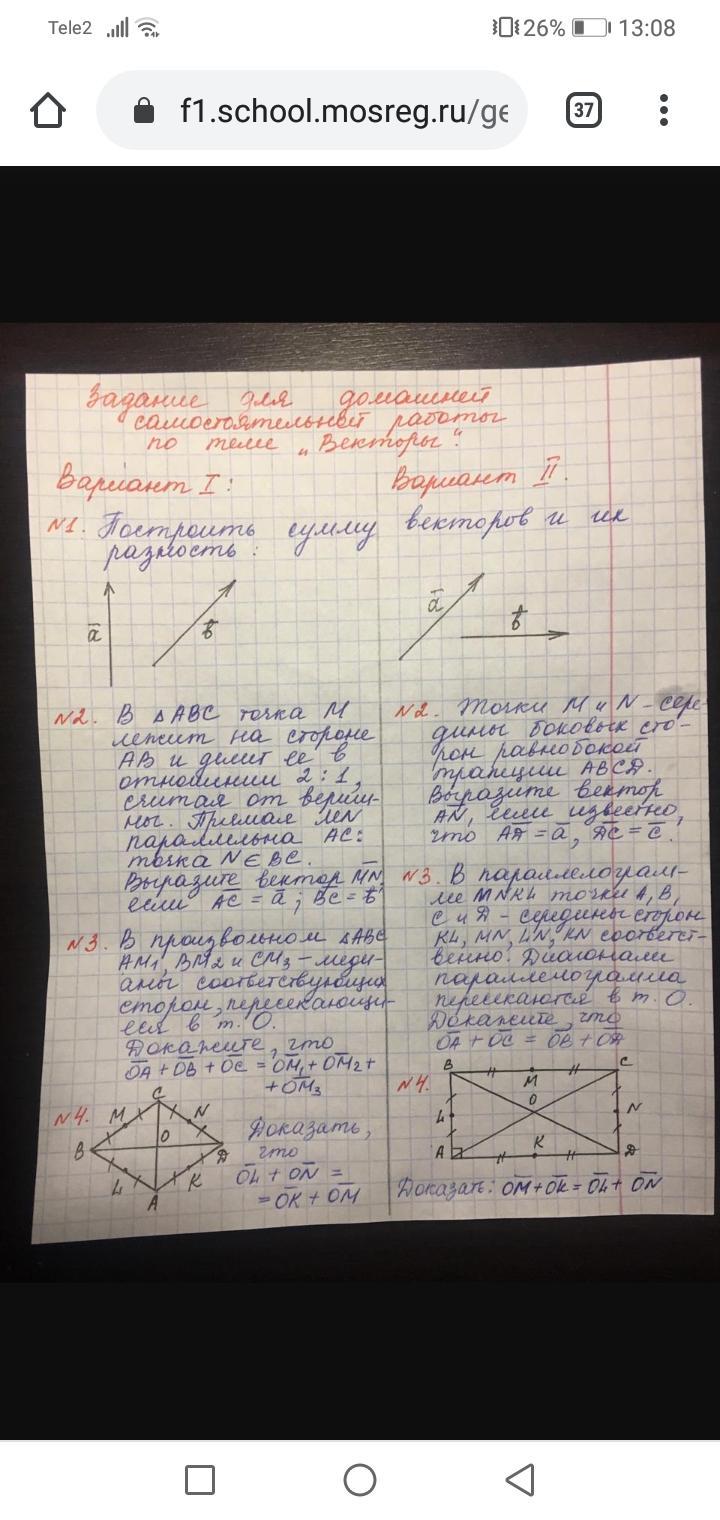 Tele2 26% 13:08
f1.school.mosreg.ru/ge
37
Задание для домашней
самостоятельной работы
по теме „Векторы".
Вариант I:
Вариант II.
N1. Построить сумму векторов и их
разность:
a̅
b̅
a̅
b̅
N2. В △ABC точка M
лежит на стороне
AB и делит ее в
отношении 2:1,
считая от верши-
ны. Прямая MN
параллельна AC:
точка N∈BC.
Выразите вектор M̅N̅,
если A̅C̅ = a̅; B̅C̅ = b̅
N3. В произвольном △ABC
AM₁, BM₂ и CM₃ – меди-
аны соответствующих
сторон, пересекающи-
еся в т. O.
Докажите, что
O̅A̅ + O̅B̅ + O̅C̅ = O̅M̅₁ + O̅M̅₂ +
+ O̅M̅₃
N4.
C
M
N
B
O
D
L
K
A
Доказать,
что
O̅L̅ + O̅N̅ =
= O̅K̅ + O̅M̅
N2. Точки M и N – сере-
дины боковых сто-
рон равнобокой
трапеции ABCD.
Выразите вектор
A̅N̅, если известно,
что A̅D̅ = a̅, D̅C̅ = c̅.
N3. В параллелограм-
ме MNKL точки A, B,
C и D – середины сторон
KL, MN, LN, KN соответст-
венно. Диагонали
параллелограмма
пересекаются в т. O.
Докажите, что
O̅A̅ + O̅C̅ = O̅B̅ + O̅D̅
N4.
B
C
M
O
L
N
K
A
D
Доказать: O̅M̅ + O̅K̅ = O̅L̅ + O̅N̅